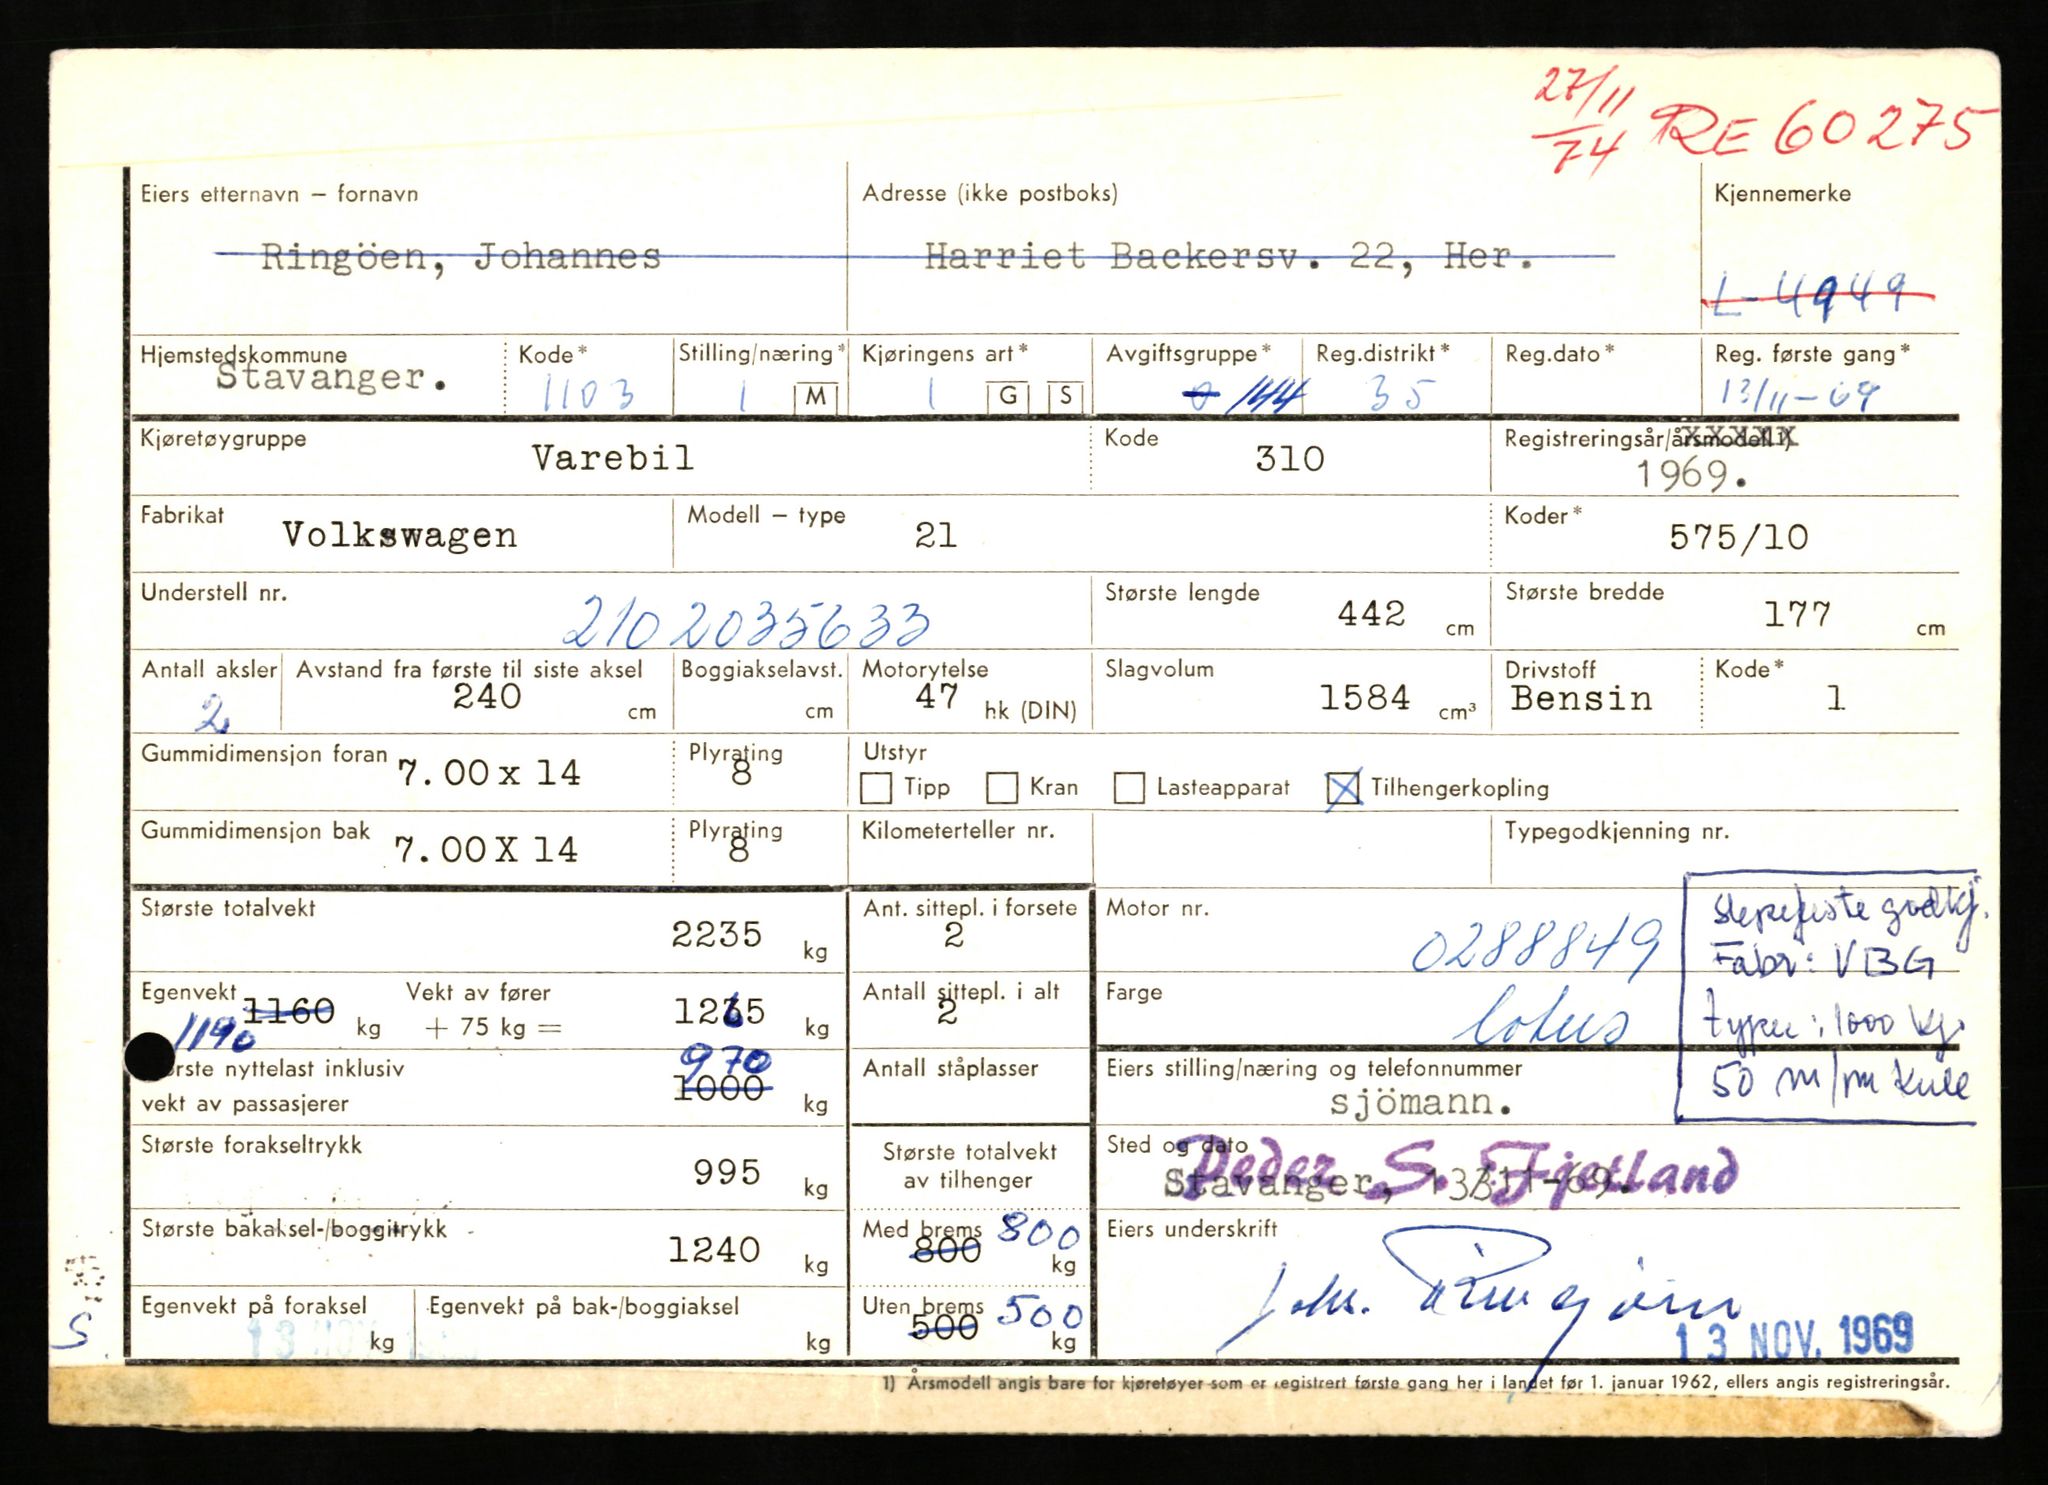 27/11
74 RE 60275
Eiers etternavn – fornavn Adresse (ikke postboks) Kjennemerke
Ringöen, Johannes Harriet Backersv. 22, Her.
L-4949
Hjemstedskommune Kode* Stilling/næring* Kjøringens art* Avgiftsgruppe* Reg.distrikt* Reg.dato* Reg. første gang*
Stavanger. 1103 1 M 1 G S 0 144 35 13/11-69
Kjøretøygruppe Kode Registreringsår/årsmodell 1)
Varebil 310 1969.
Fabrikat Modell – type Koder*
Volkswagen 21 575/10
Understell nr. Største lengde Største bredde
2102035633 442 cm 177 cm
Antall aksler Avstand fra første til siste aksel Boggiakselavst. Motorytelse Slagvolum Drivstoff Kode*
2 240 cm cm 47 hk (DIN) 1584 cm³ Bensin 1
Gummidimensjon foran Plyrating Utstyr
7.00 x 14 8 Tipp Kran Lasteapparat Tilhengerkopling
Gummidimensjon bak Plyrating Kilometerteller nr. Typegodkjenning nr.
7.00 X 14 8
Største totalvekt Ant. sittepl. i forsete Motor nr.
2235 kg 2 0288849
Slepefeste godkj.
Fabr: VBG
type: 1000 kg
50 m/m kule
Egenvekt Vekt av fører Antall sittepl. i alt Farge
1160 1190 kg + 75 kg = 1265 kg 2 lotus
Største nyttelast inklusiv Antall ståplasser Eiers stilling/næring og telefonnummer
970
vekt av passasjerer 1000 kg sjömann.
Største forakseltrykk Største totalvekt av tilhenger Sted og dato
995 kg Stavanger, 13/11-69.
Peder S. Fjetland
Største bakaksel-/boggitrykk Med brems 800 Eiers underskrift
1240 kg 800 kg
Joh. Ringøen
Egenvekt på foraksel Egenvekt på bak-/boggiaksel Uten brems 500
kg kg 500 kg
13 NOV. 13 NOV. 1969
S
1) Årsmodell angis bare for kjøretøyer som er registrert første gang her i landet før 1. januar 1962, ellers angis registreringsår.